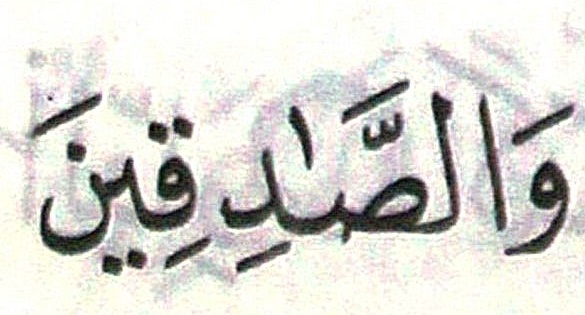 وَالصَّٰدِقِينَ